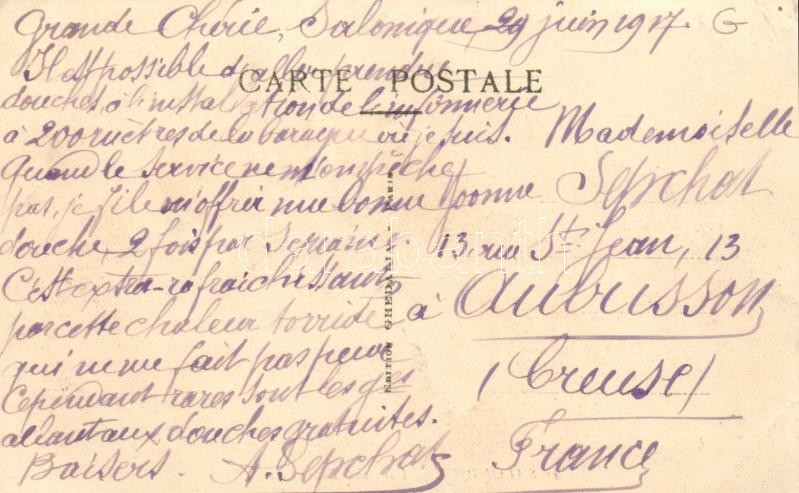 Grande Chérie, Salonique, 29 juin 1917. G
Il est possible d'aller prendre
CARTE POSTALE
douches à l'installation de l'infirmerie
à 200 mètres de la baraque où je suis.
Quand le service ne m'empêche
pas, je file m'offrir une bonne
douche, 2 fois par semaine.
C'est extra-rafraîchissant
par cette chaleur torride
qui ne me fait pas peur.
Cependant rares sont les gens
allant aux douches gratuites.
Baisers. A. Sepchat
Mademoiselle
Yvonne Sepchat
13, rue St Jean, 13
à Aubusson
(Creuse)
France
EDITION GHEDALIA - PARIS
darabanth